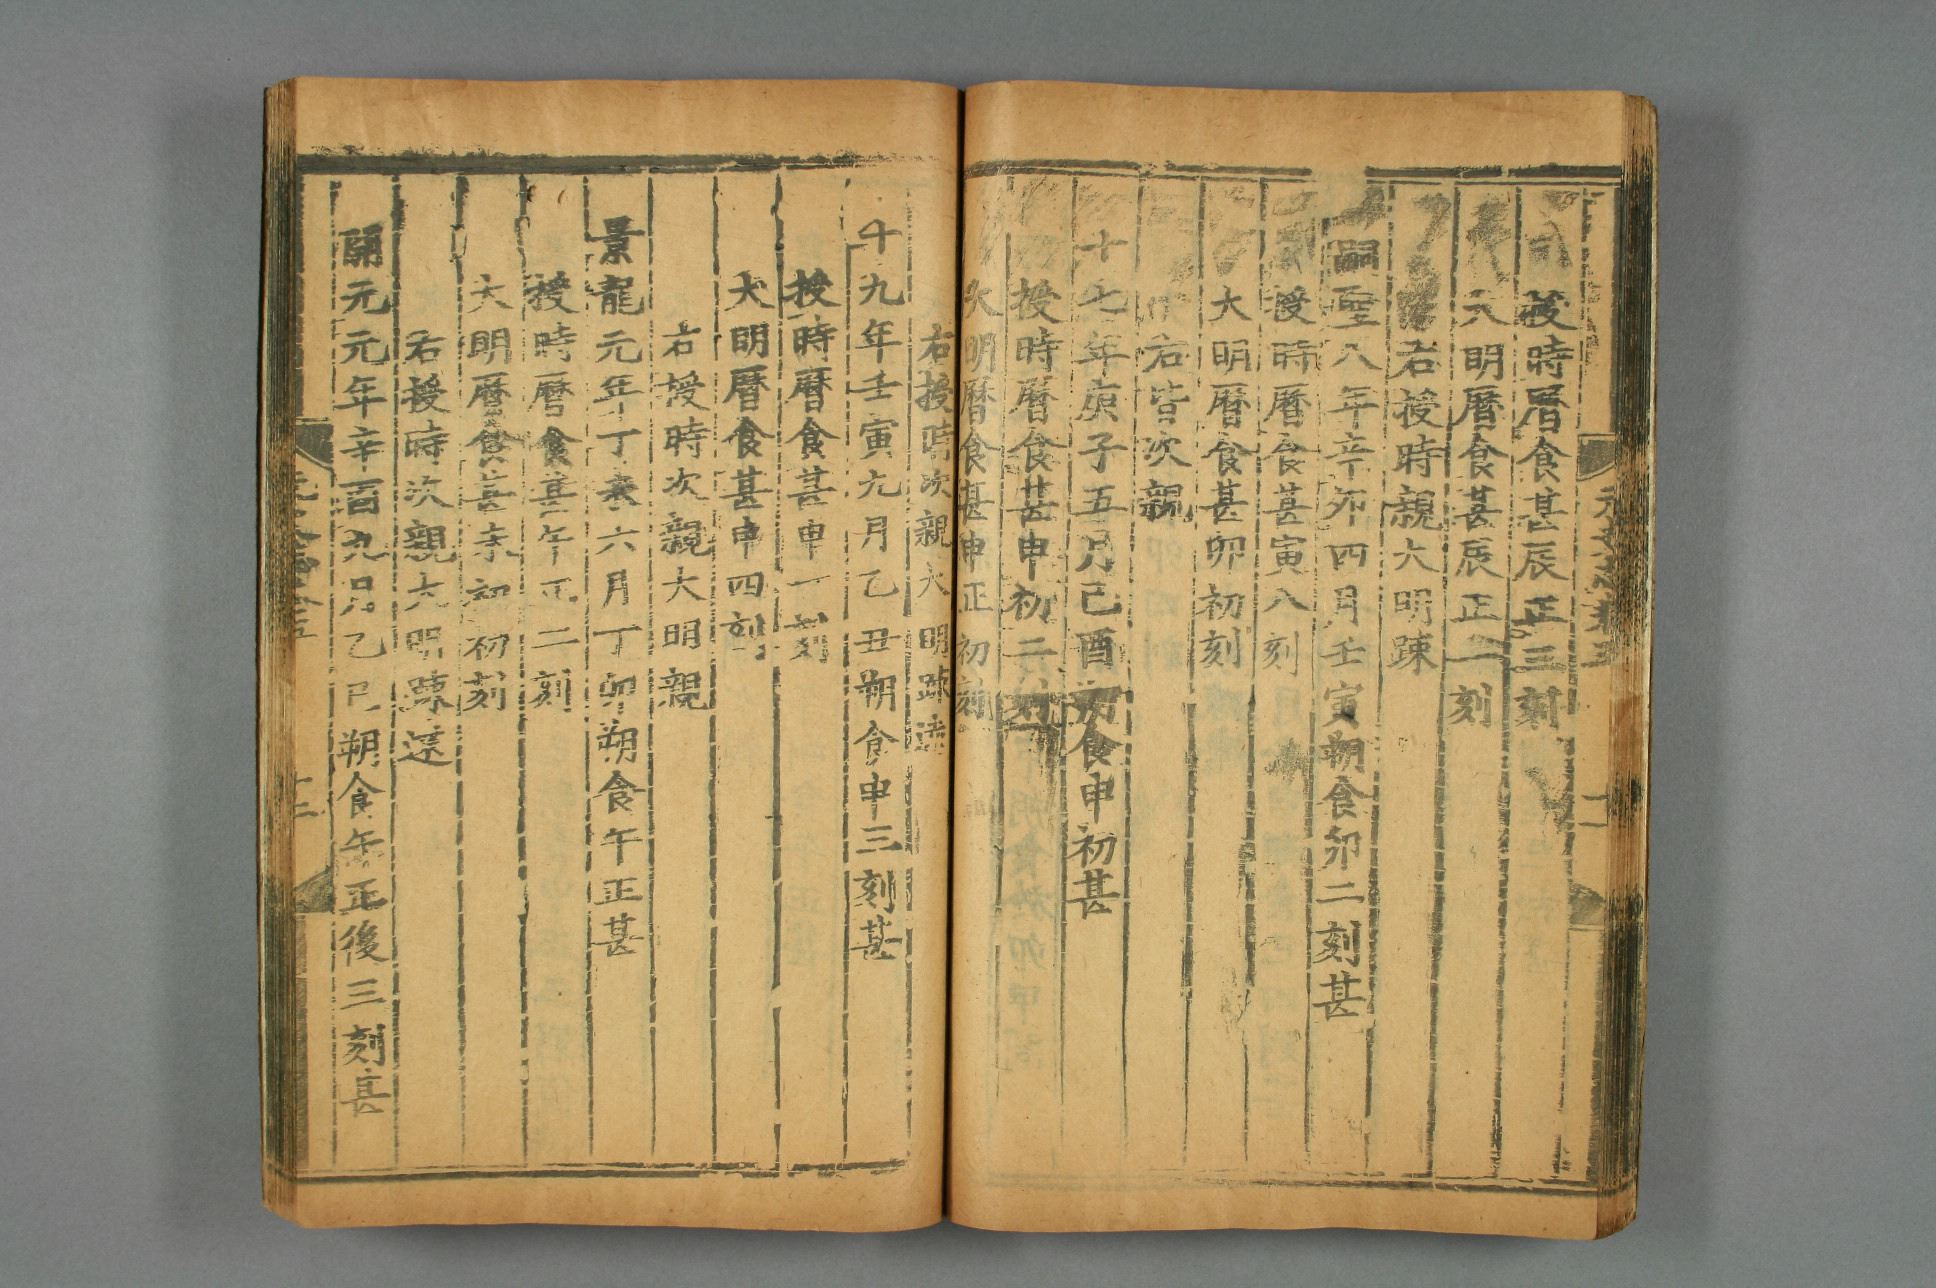 授時曆食甚辰正三刻
大明曆食甚辰正一刻
右授時親大明踈
嗣聖八年辛卯四月壬寅朔食卯二刻甚
授時曆食甚寅八刻
大明曆食甚卯初刻
右皆次親
十七年庚子五月己酉朔食申初甚
授時曆食甚申初二刻
大明曆食甚申正初刻
右授時次親大明踈遠
十九年壬寅九月乙丑朔食申三刻甚
授時曆食甚申一刻
大明曆食甚申四刻
右授時次親大明親
景龍元年丁未六月丁卯朔食午正甚
授時曆食甚午正二刻
大明曆食甚未初初刻
右授時次親大明踈遠
開元元年辛酉九月乙巳朔食午正後三刻甚
十二